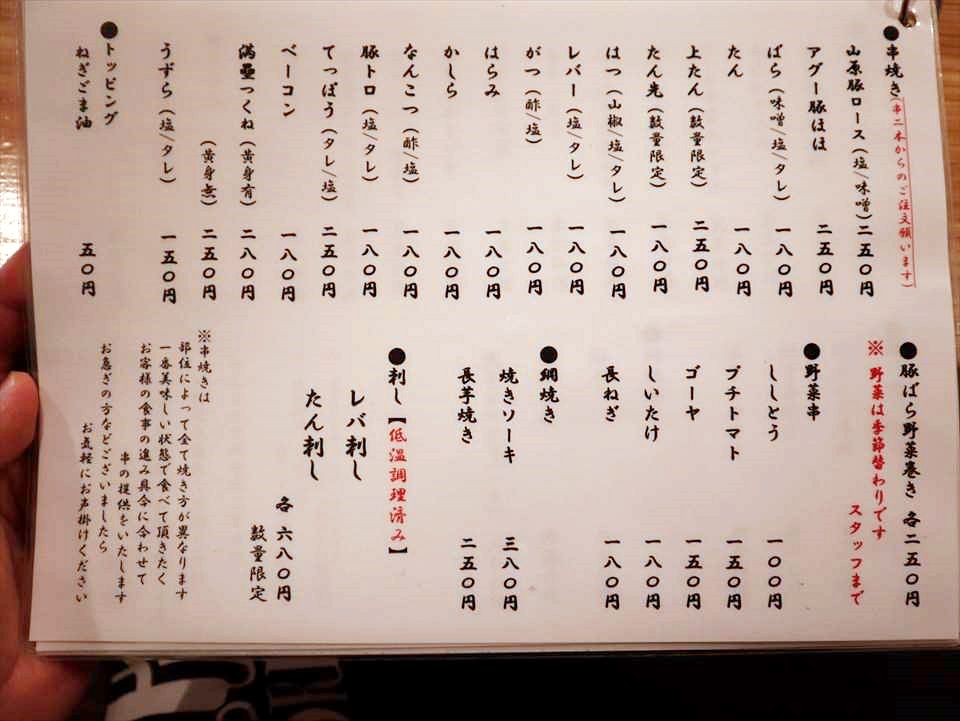 ●串焼き(串二本からのご注文願います)
山原豚ロース(塩/味噌)二五〇円
アグー豚ほほ 二五〇円
ばら(味噌/塩/タレ)一八〇円
たん 一八〇円
上たん(数量限定)二五〇円
たん先(数量限定)一八〇円
はつ(山椒/塩/タレ)一八〇円
レバー(塩/タレ)一八〇円
がつ(酢/塩)一八〇円
はらみ 一八〇円
かしら 一八〇円
なんこつ(酢/塩)一八〇円
豚トロ(塩/タレ)一八〇円
てっぽう(タレ/塩)二五〇円
ベーコン 一八〇円
満壘つくね(黄身有)二八〇円
(黄身無)二五〇円
うずら(塩/タレ)一五〇円
●トッピング
ねぎごま油 五〇円
●豚ばら野菜巻き 各二五〇円
※野菜は季節替わりです
スタッフまで
●野菜串
ししとう 一〇〇円
プチトマト 一五〇円
ゴーヤ 一五〇円
しいたけ 一八〇円
長ねぎ 一八〇円
●網焼き
焼きソーキ 三八〇円
長芋焼き 二五〇円
●刺し【低温調理済み】
レバ刺し
たん刺し
各 六八〇円
数量限定
※串焼きは
部位によって全て焼き方が異なります
一番美味しい状態で食べて頂きたく
お客様の食事の進み具合に合わせて
串の提供をいたします
お急ぎの方などございましたら
お気軽にお声掛けください